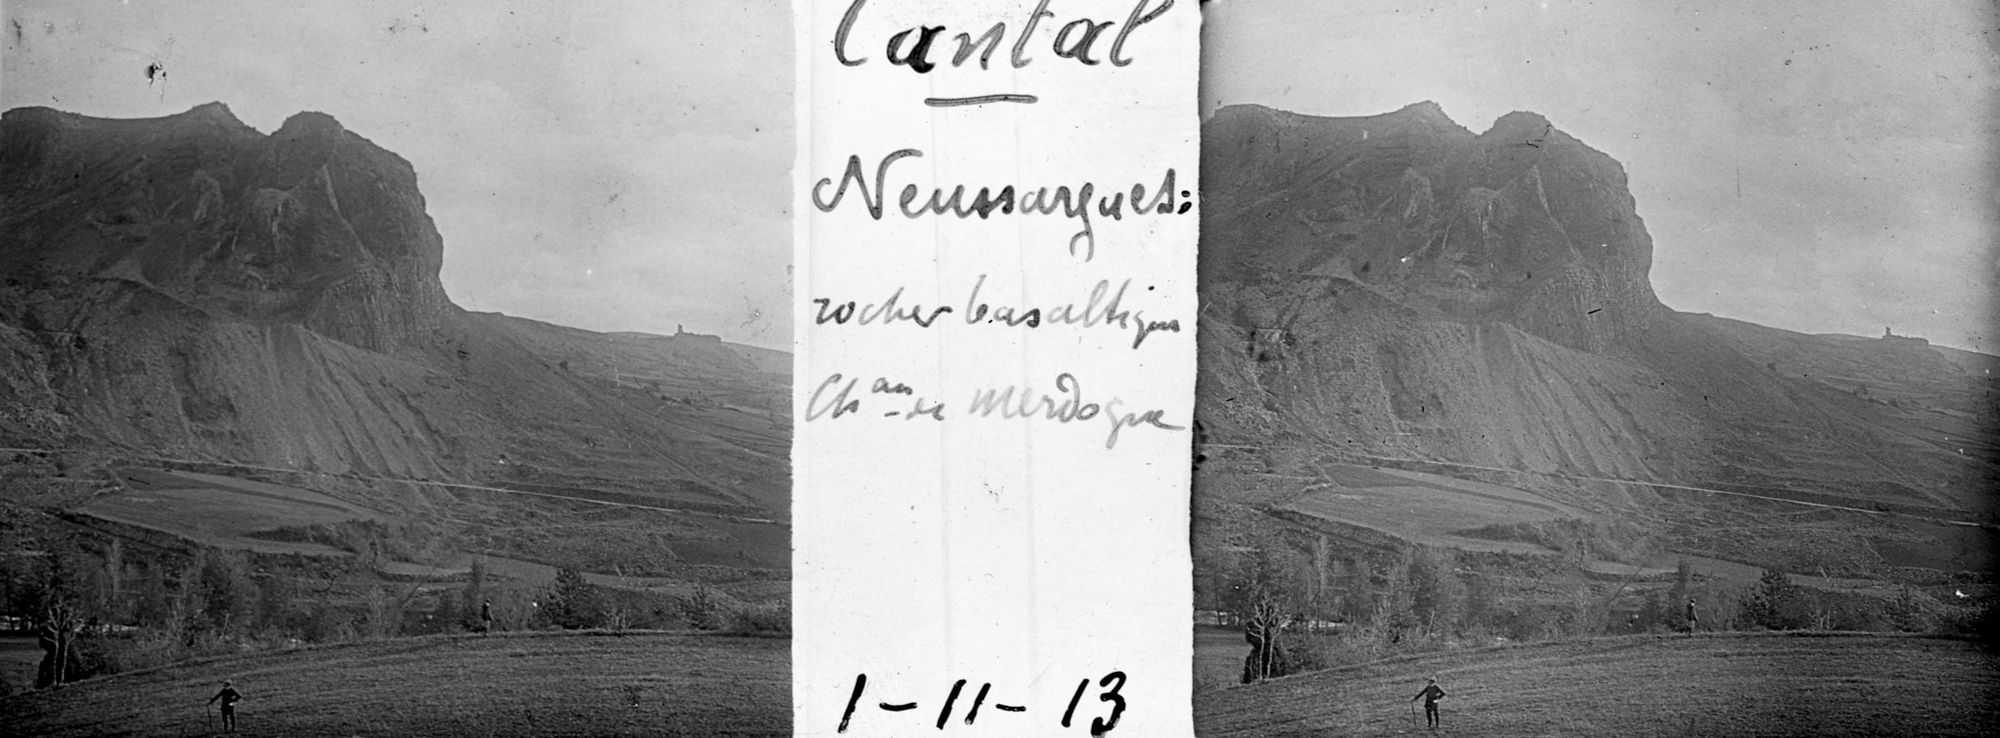 Cantal
Neussargues:
rocher basaltique
Ch^au de Merdogne
1-11-13